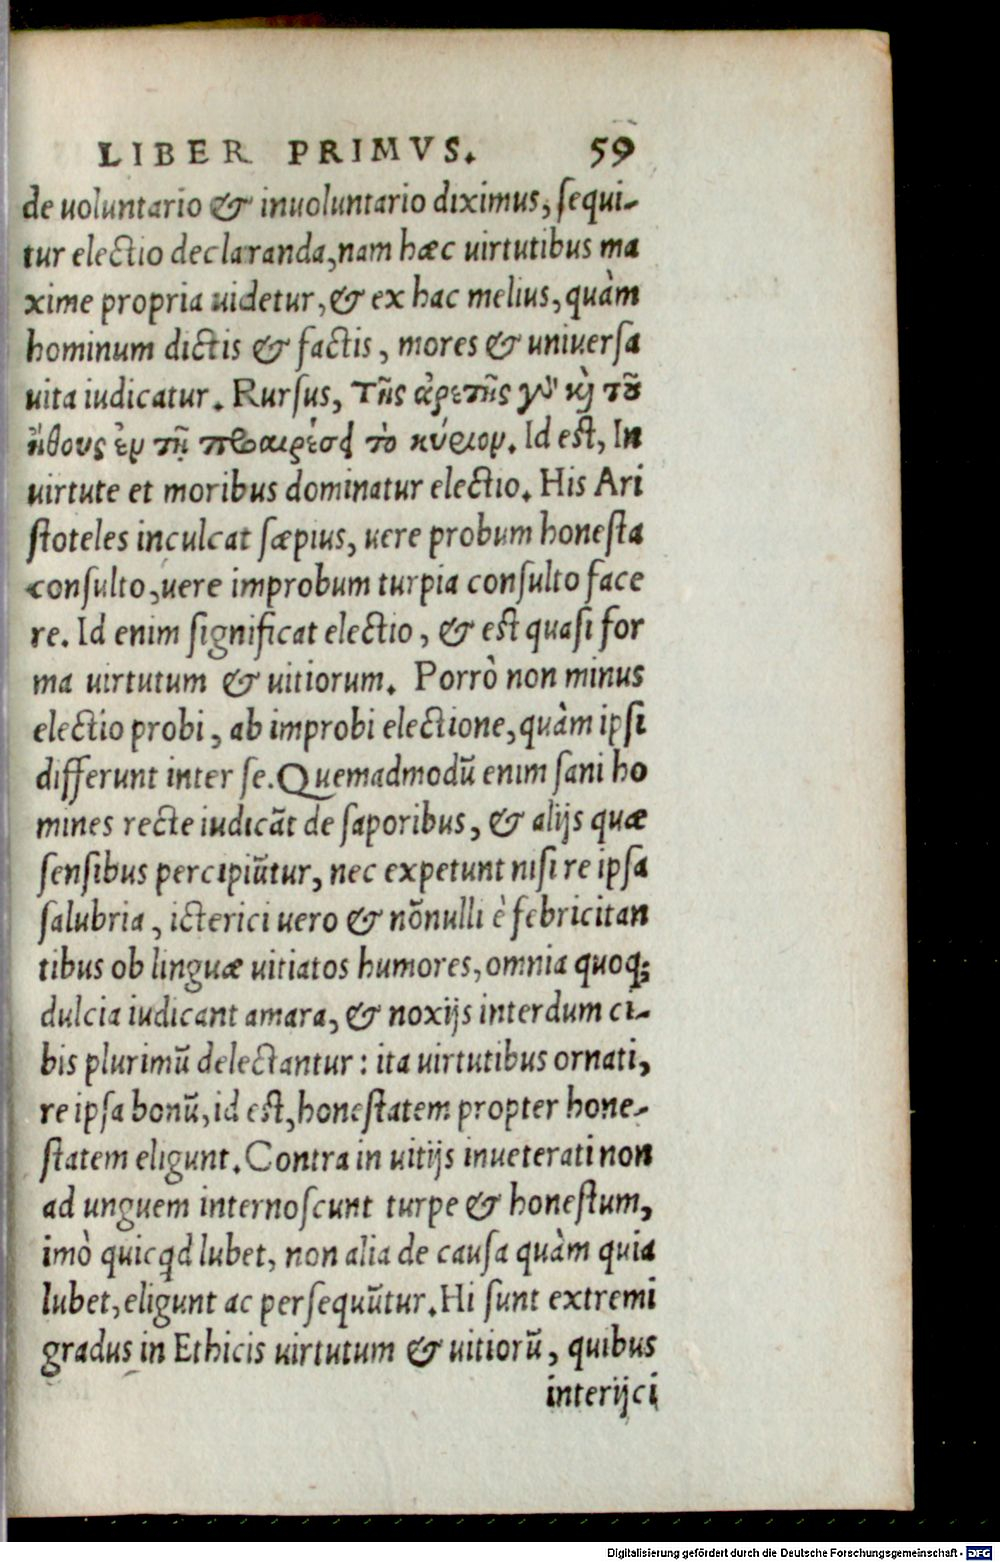 LIBER PRIMVS. 59
de uoluntario & inuoluntario diximus, ſequi-
tur electio declaranda, nam hæc uirtutibus ma
xime propria uidetur, & ex hac melius, quàm
hominum dictis & factis, mores & uniuerſa
uita iudicatur. Rurſus, τῆς ἀρετῆς γὰρ καὶ τοῦ
ἤθους ἐν τῇ προαιρέσει τὸ κύριον. Id eſt, In
uirtute et moribus dominatur electio. His Ari
ſtoteles inculcat ſæpius, uere probum honeſta
conſulto, uere improbum turpia conſulto face
re. Id enim ſignificat electio, & eſt quaſi for
ma uirtutum & uitiorum. Porrò non minus
electio probi, ab improbi electione, quàm ipſi
differunt inter ſe. Quemadmodũ enim ſani ho
mines recte iudicãt de ſaporibus, & alijs quæ
ſenſibus percipiũtur, nec expetunt niſi re ipſa
ſalubria, icterici uero & nõnulli è febricitan
tibus ob linguæ uitiatos humores, omnia quoq;
dulcia iudicant amara, & noxijs interdum ci-
bis plurimũ delectantur: ita uirtutibus ornati,
re ipſa bonũ, id eſt, honeſtatem propter hone-
ſtatem eligunt. Contra in uitijs inueterati non
ad unguem internoſcunt turpe & honeſtum,
imò quicqd lubet, non alia de cauſa quàm quia
lubet, eligunt ac perſequũtur. Hi ſunt extremi
gradus in Ethicis uirtutum & uitiorũ, quibus
interijci
Digitalisierung gefördert durch die Deutsche Forschungsgemeinschaft - DFG